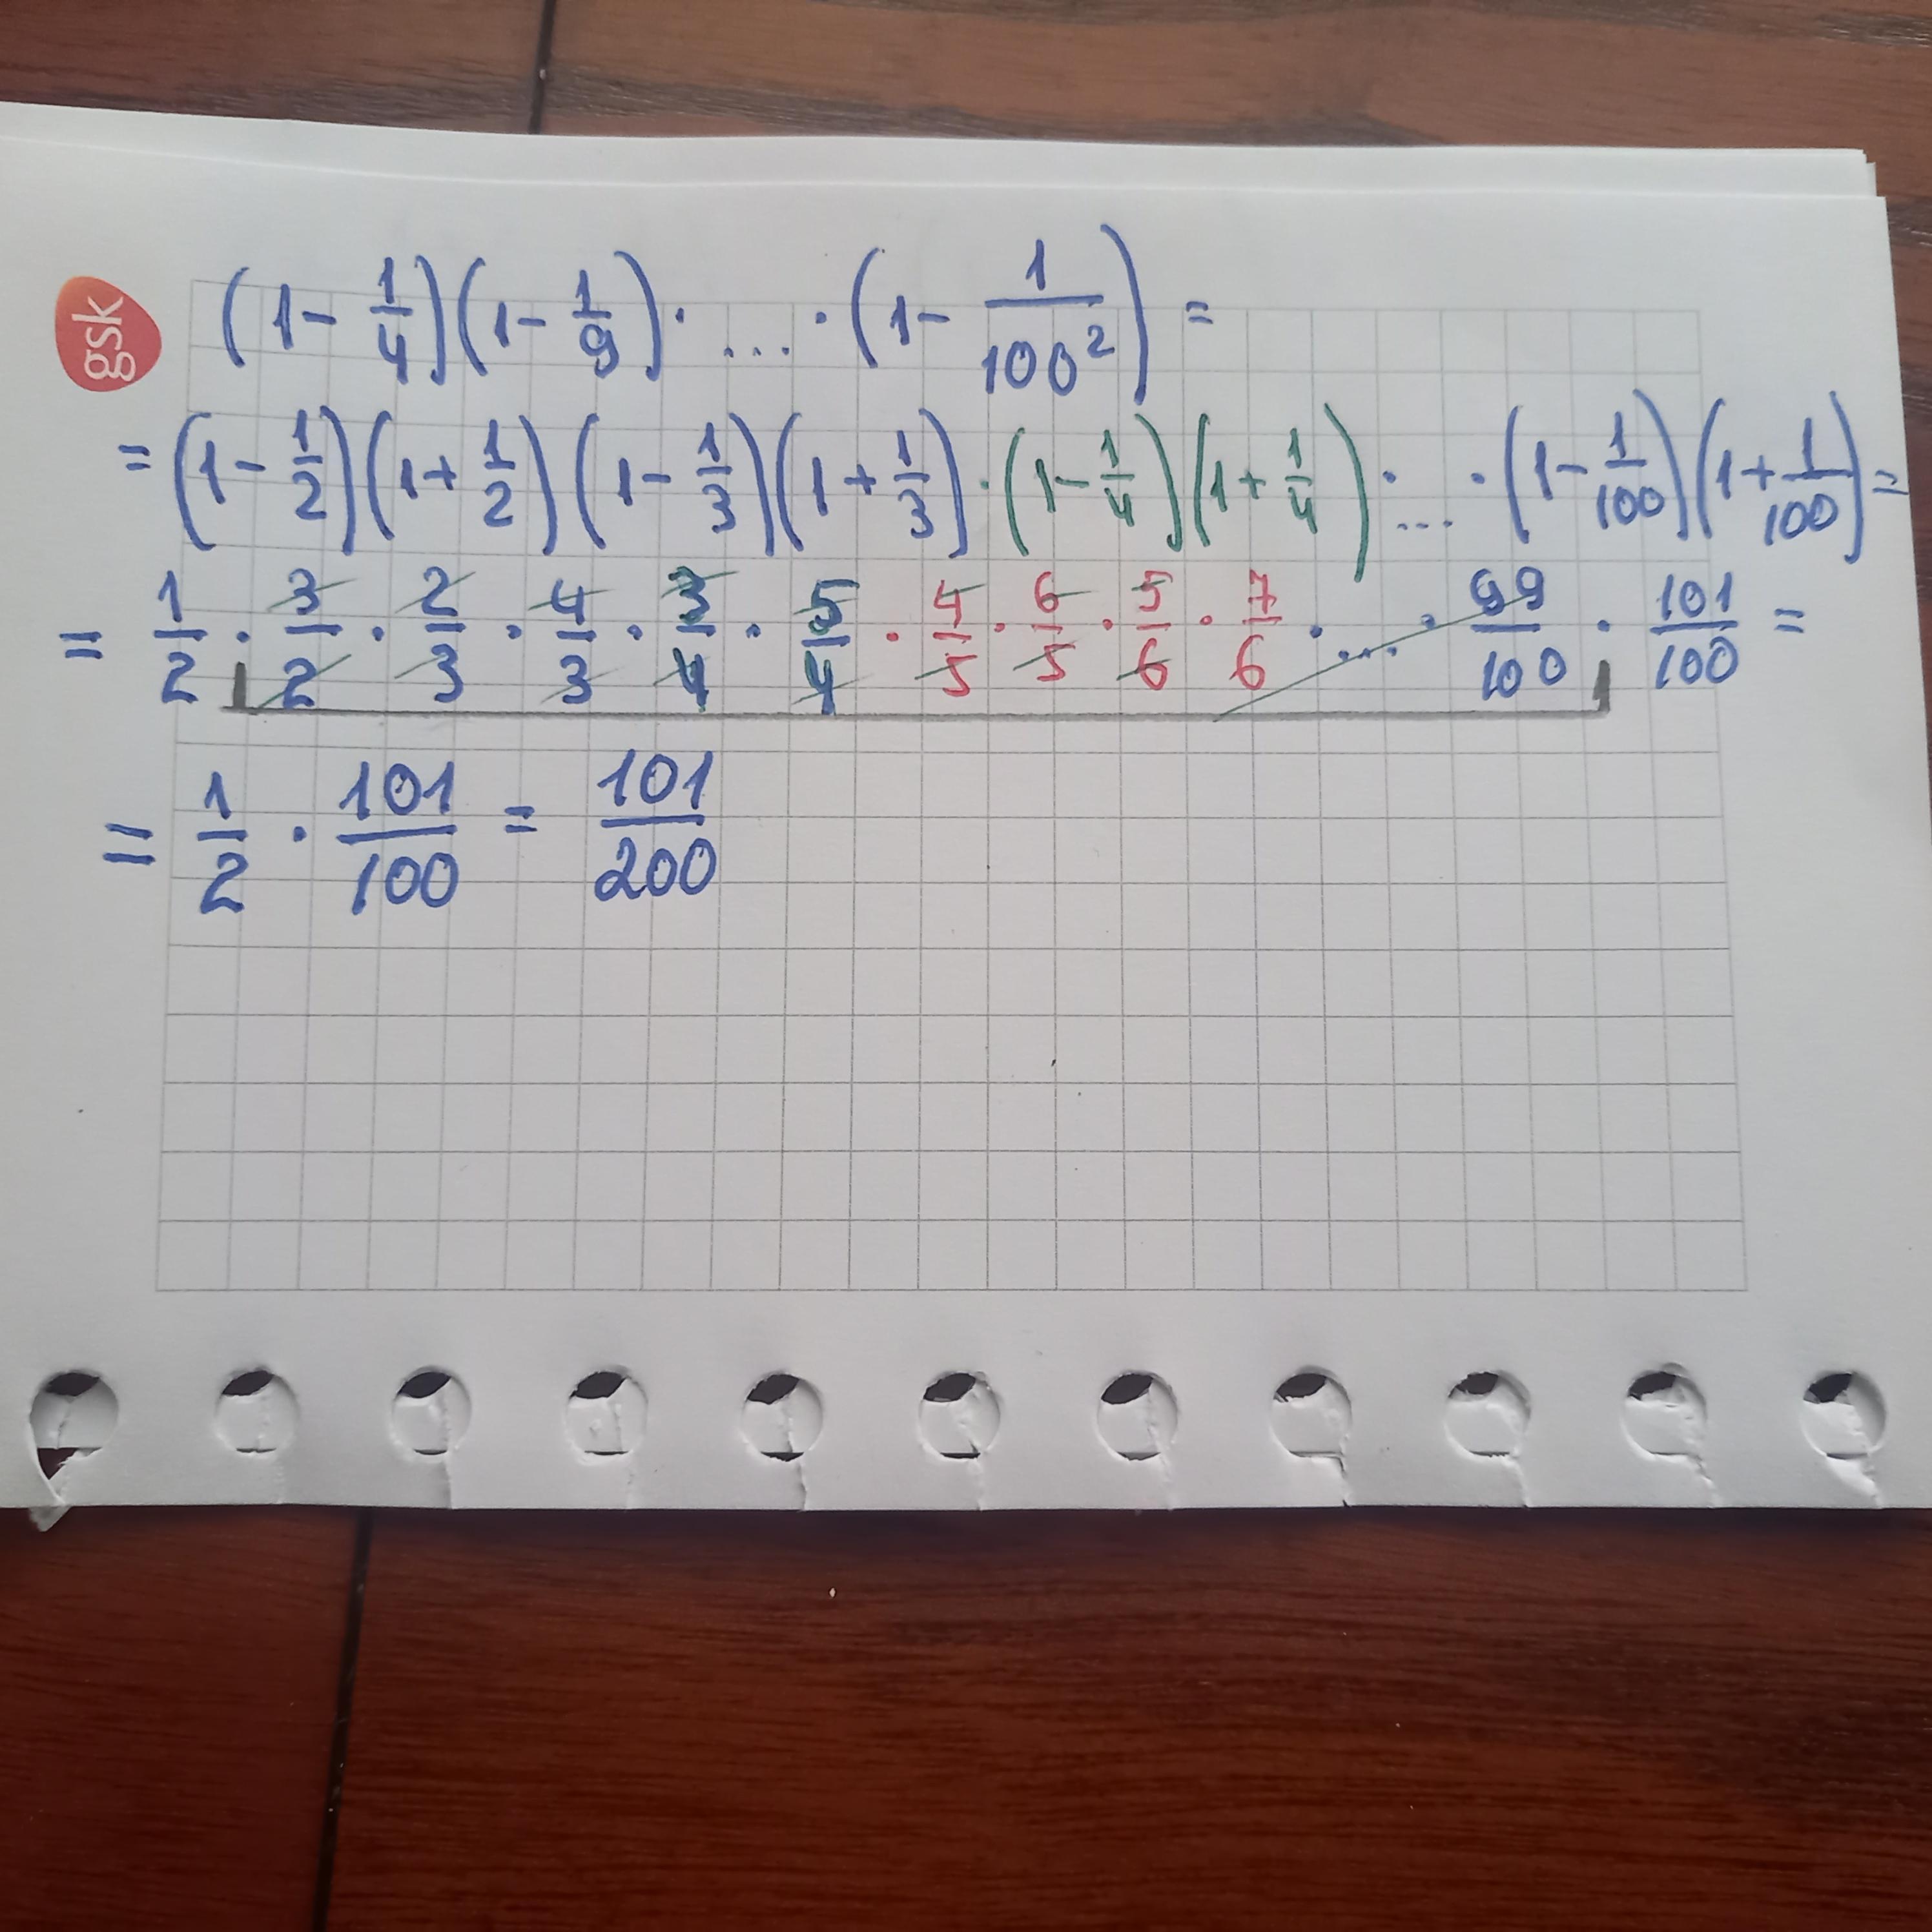 gsk
(1 - 1/4)(1 - 1/9) · ... · (1 - 1/100²) =
= (1 - 1/2)(1 + 1/2)(1 - 1/3)(1 + 1/3) · (1 - 1/4)(1 + 1/4) · ... · (1 - 1/100)(1 + 1/100) =
= 1/2 · 3/2 · 2/3 · 4/3 · 3/4 · 5/4 · 4/5 · 6/5 · 5/6 · 7/6 · ... · 99/100 · 101/100 =
= 1/2 · 101/100 = 101/200